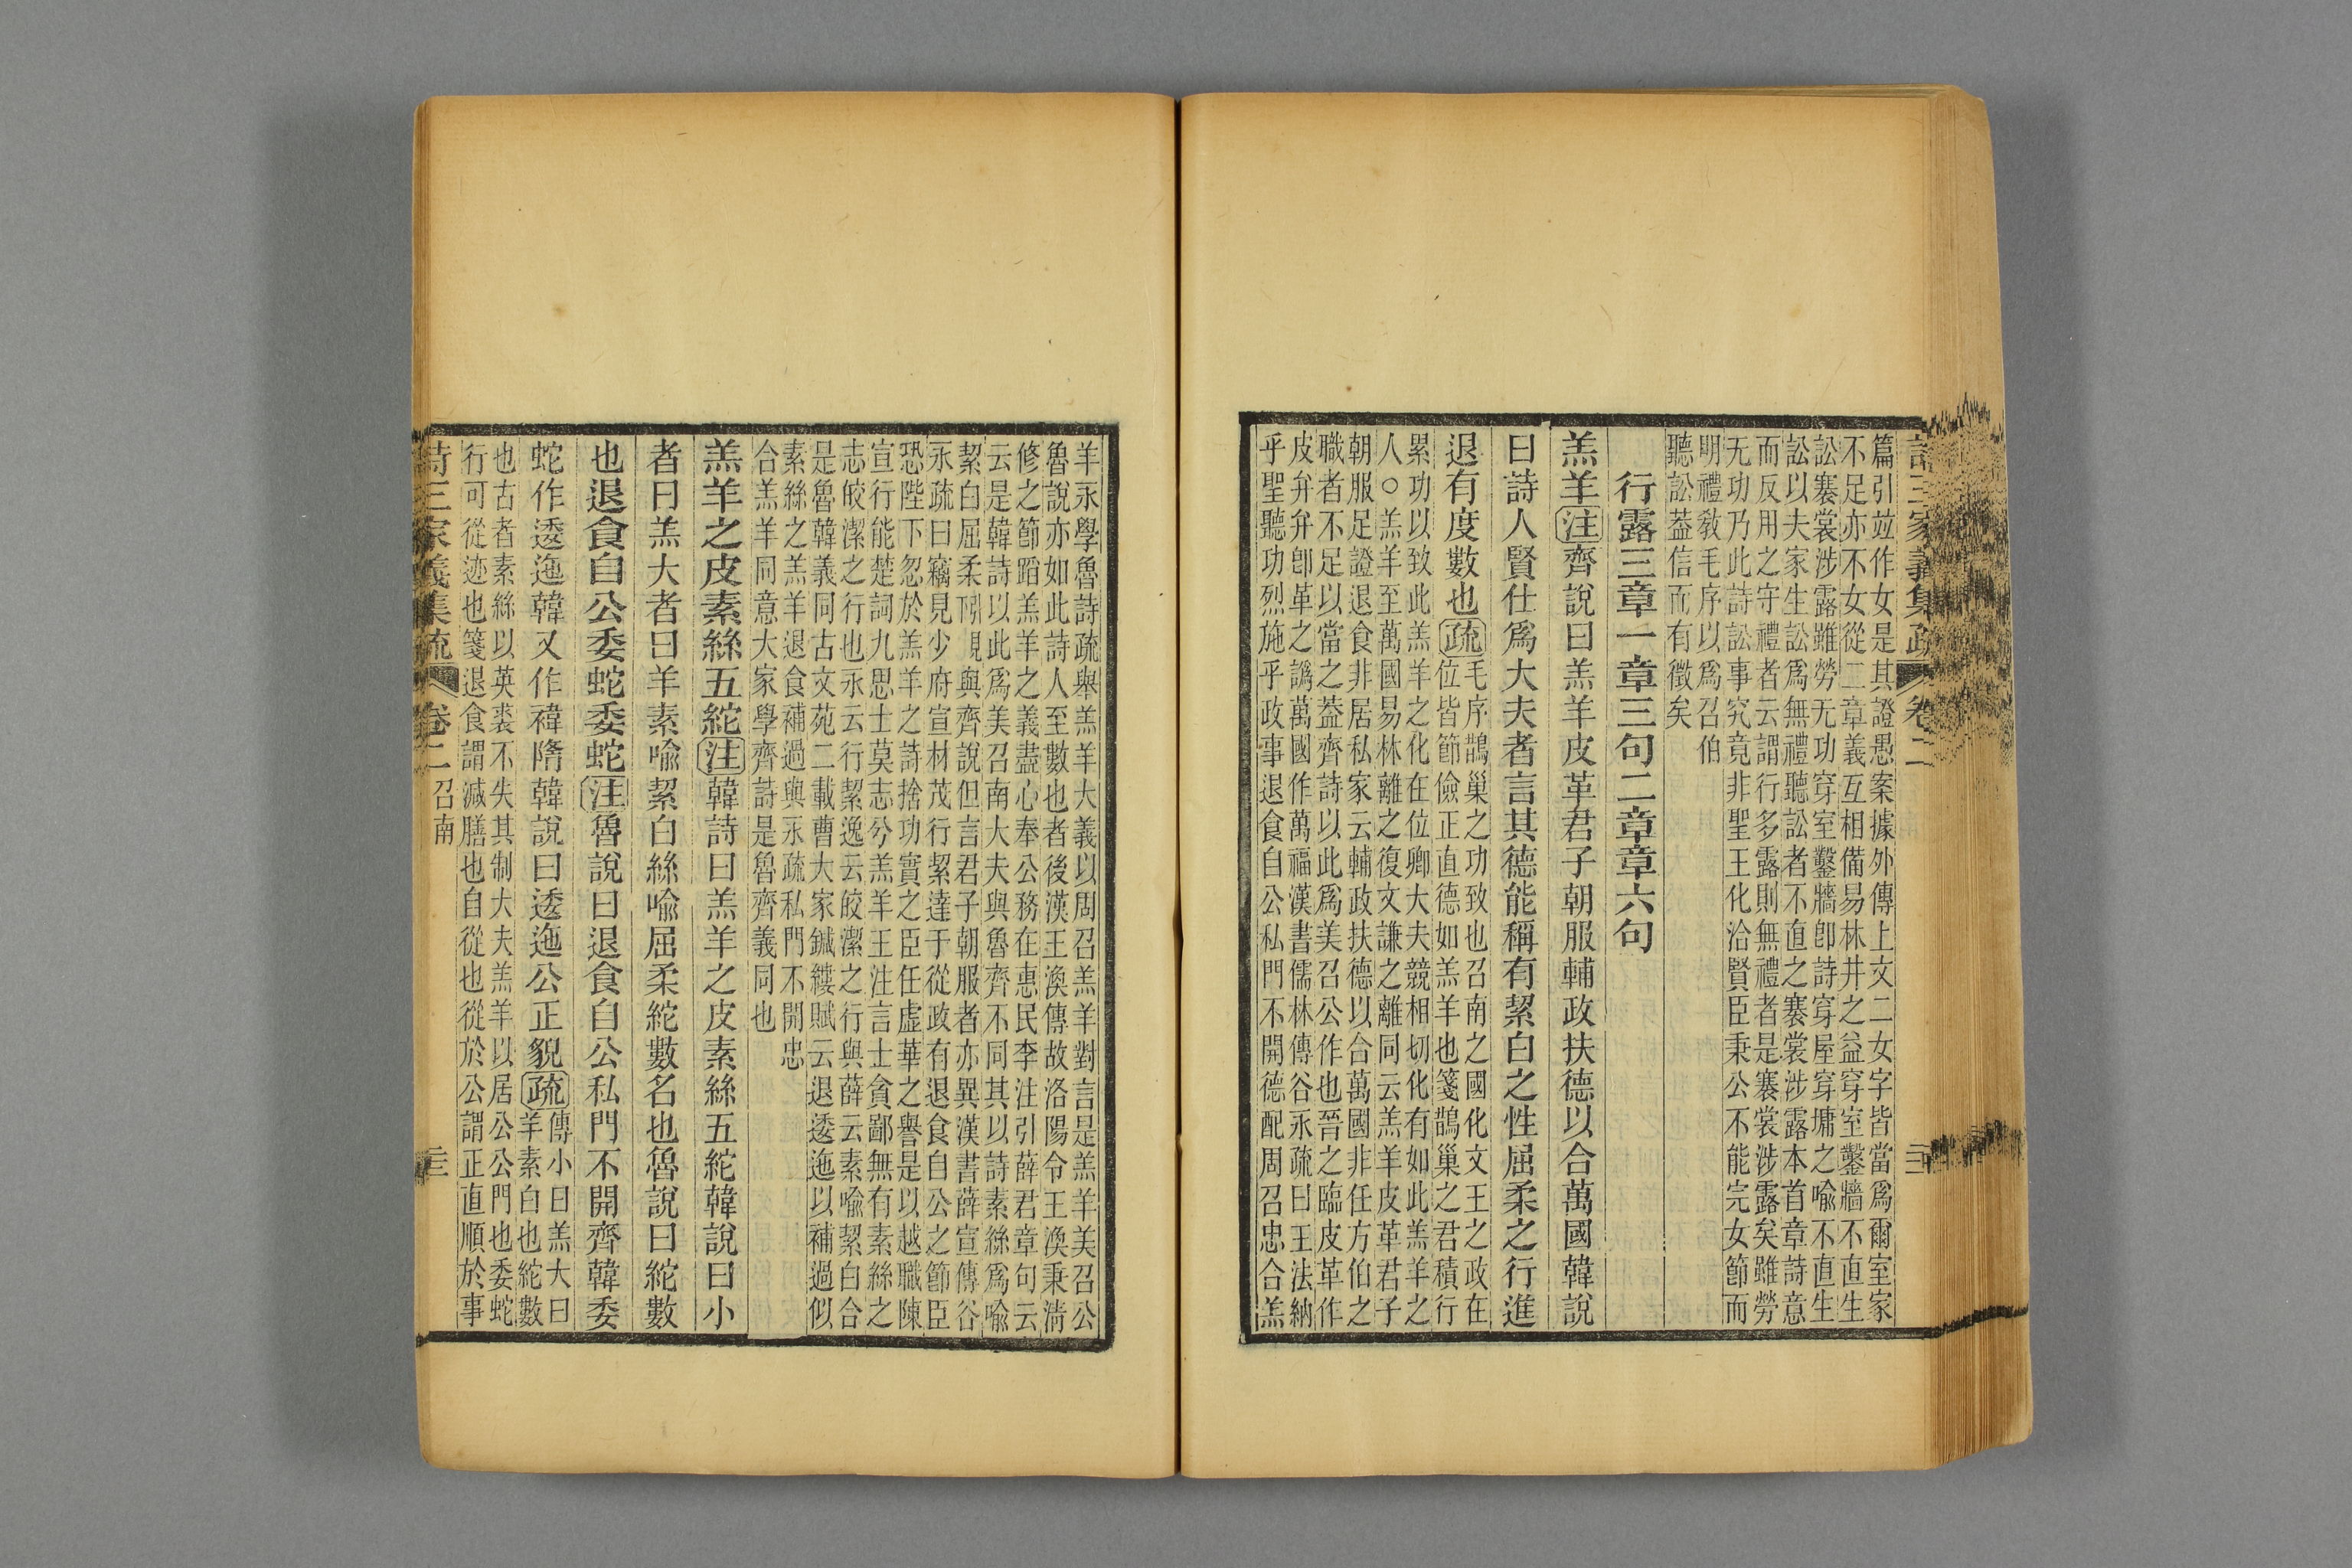 詩三家義集疏 卷二
篇引竝作女是其證愚案據外傳上文二女字皆當爲爾室家
不足亦不女從二章義互相備易林井之益穿室鑿牆不直生
訟褰裳涉露雖勞无功穿室鑿牆卽詩穿屋穿墉之喻不直生
訟以夫家生訟爲無禮聽訟者不直之褰裳涉露本首章詩意
而反用之守禮者云謂行多露則無禮者是褰裳涉露矣雖勞
无功乃此詩訟事究竟非聖王化洽賢臣秉公不能完女節而
明禮敎毛序以爲召伯
聽訟葢信而有徵矣
行露三章一章三句二章章六句
羔羊注齊說曰羔羊皮革君子朝服輔政扶德以合萬國韓說
曰詩人賢仕爲大夫者言其德能稱有絜白之性屈柔之行進
退有度數也疏
毛序鵲巢之功致也召南之國化文王之政在
位皆節儉正直德如羔羊也箋鵲巢之君積行
累功以致此羔羊之化在位卿大夫競相切化有如此羔羊之
人○羔羊至萬國易林離之復文謙之離同云羔羊皮革君子
朝服足證退食非居私家云輔政扶德以合萬國非任方伯之
職者不足以當之葢齊詩以此爲美召公作也晉之臨皮革作
皮弁弁卽革之譌萬國作萬福漢書儒林傳谷永疏曰王法納
乎聖聽功烈施乎政事退食自公私門不開德配周召忠合羔
羊永學魯詩疏舉羔羊大義以周召羔羊對言是羔羊美召公
魯說亦如此詩人至數也者後漢王渙傳故洛陽令王渙秉淸
修之節蹈羔羊之義盡心奉公務在惠民李注引薛君章句云
云是韓詩以此爲美召南大夫與魯齊不同其以詩素絲爲喻
絜白屈柔㓝覒與齊說但言君子朝服者亦異漢書薛宣傳谷
永疏曰竊見少府宣材茂行絜達于從政有退食自公之節臣
恐陛下忽於羔羊之詩捨功實之臣任虛華之譽是以越職陳
宣行能楚詞九思士莫志兮羔羊王注言士貪鄙無有素絲之
志皎潔之行也永云行絜逸云皎潔之行與薛云素喻絜白合
是魯韓義同古文苑二載曹大家鍼縷賦云退逶迤以補過似
素絲之羔羊退食補過與永疏私門不開忠
合羔羊同意大家學齊詩是魯齊義同也
羔羊之皮素絲五紽注韓詩曰羔羊之皮素絲五紽韓說曰小
者曰羔大者曰羊素喻絜白絲喻屈柔紽數名也魯說曰紽數
也退食自公委蛇委蛇注魯說曰退食自公私門不開齊韓委
蛇作逶迤韓又作禕隋韓說曰逶迤公正貌疏
傳小曰羔大曰
羊素白也紽數
也古者素絲以英裘不失其制大夫羔羊以居公公門也委蛇
行可從迹也箋退食謂減膳也自從也從於公謂正直順於事
詩三家義集疏 卷二 召南